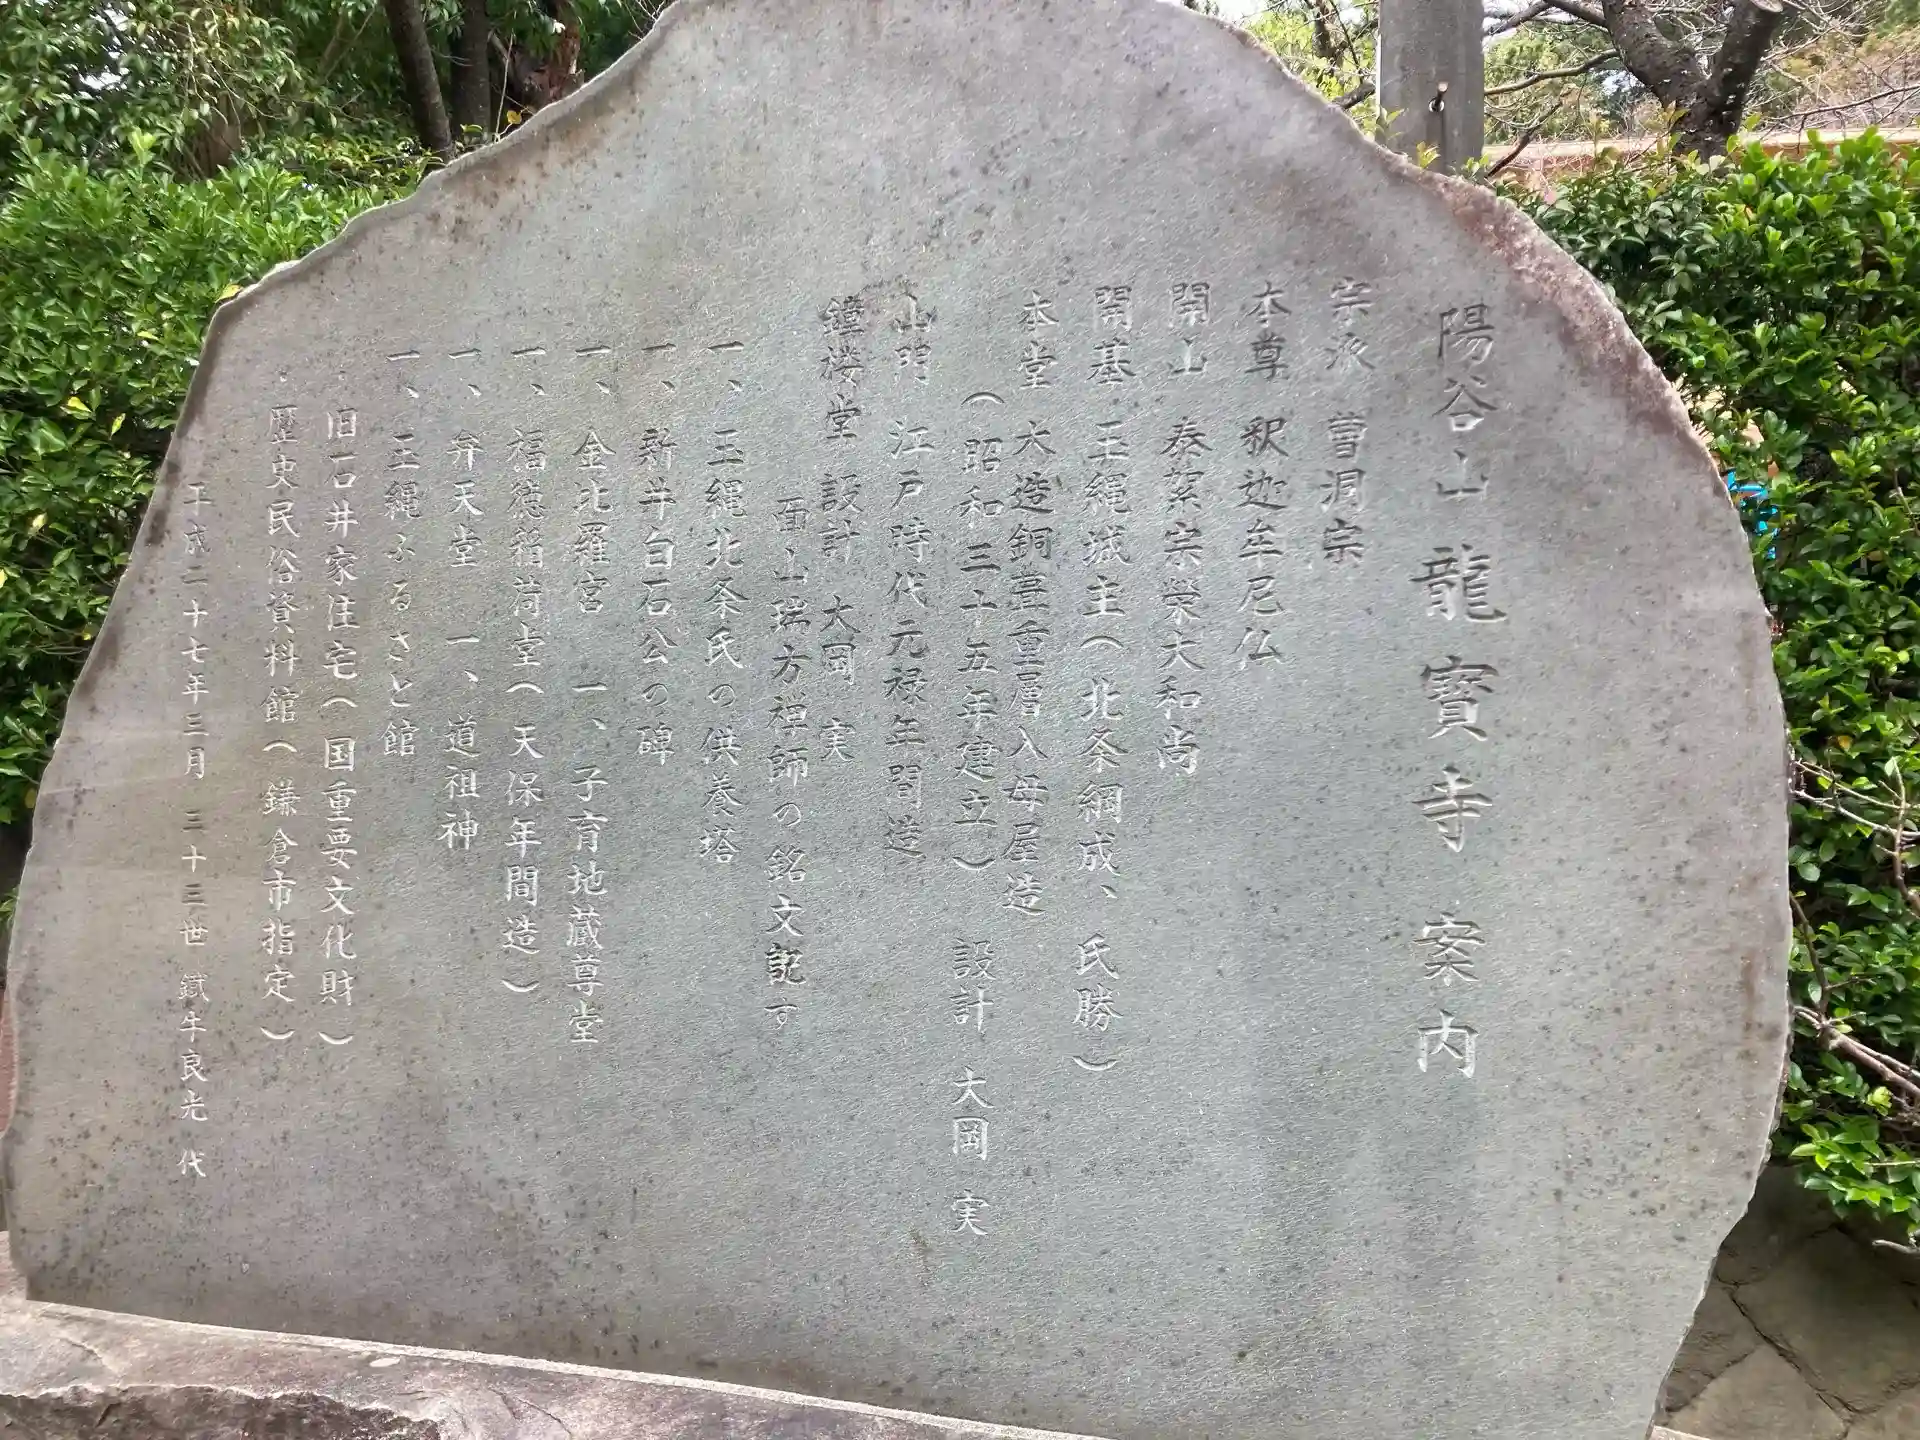 陽谷山 龍寳寺 案内
宗派 曹洞宗
本尊 釈迦牟尼仏
開山 泰絮宗榮大和尚
開基 玉縄城主(北条綱成、氏勝)
本堂 大造銅葺重層入母屋造
(昭和三十五年建立) 設計 大岡 実
山門 江戸時代元禄年間造
鐘楼堂 設計 大岡 実
面山瑞方禅師の銘文記す
一、玉縄北条氏の供養塔
一、新井白石公の碑
一、金比羅宮 一、子育地蔵尊堂
一、福徳稲荷堂(天保年間造)
一、弁天堂 一、道祖神
一、玉縄ふるさと館
旧石井家住宅(国重要文化財)
歴史民俗資料館(鎌倉市指定)
平成二十七年三月 三十三世 鐵牛良光 代